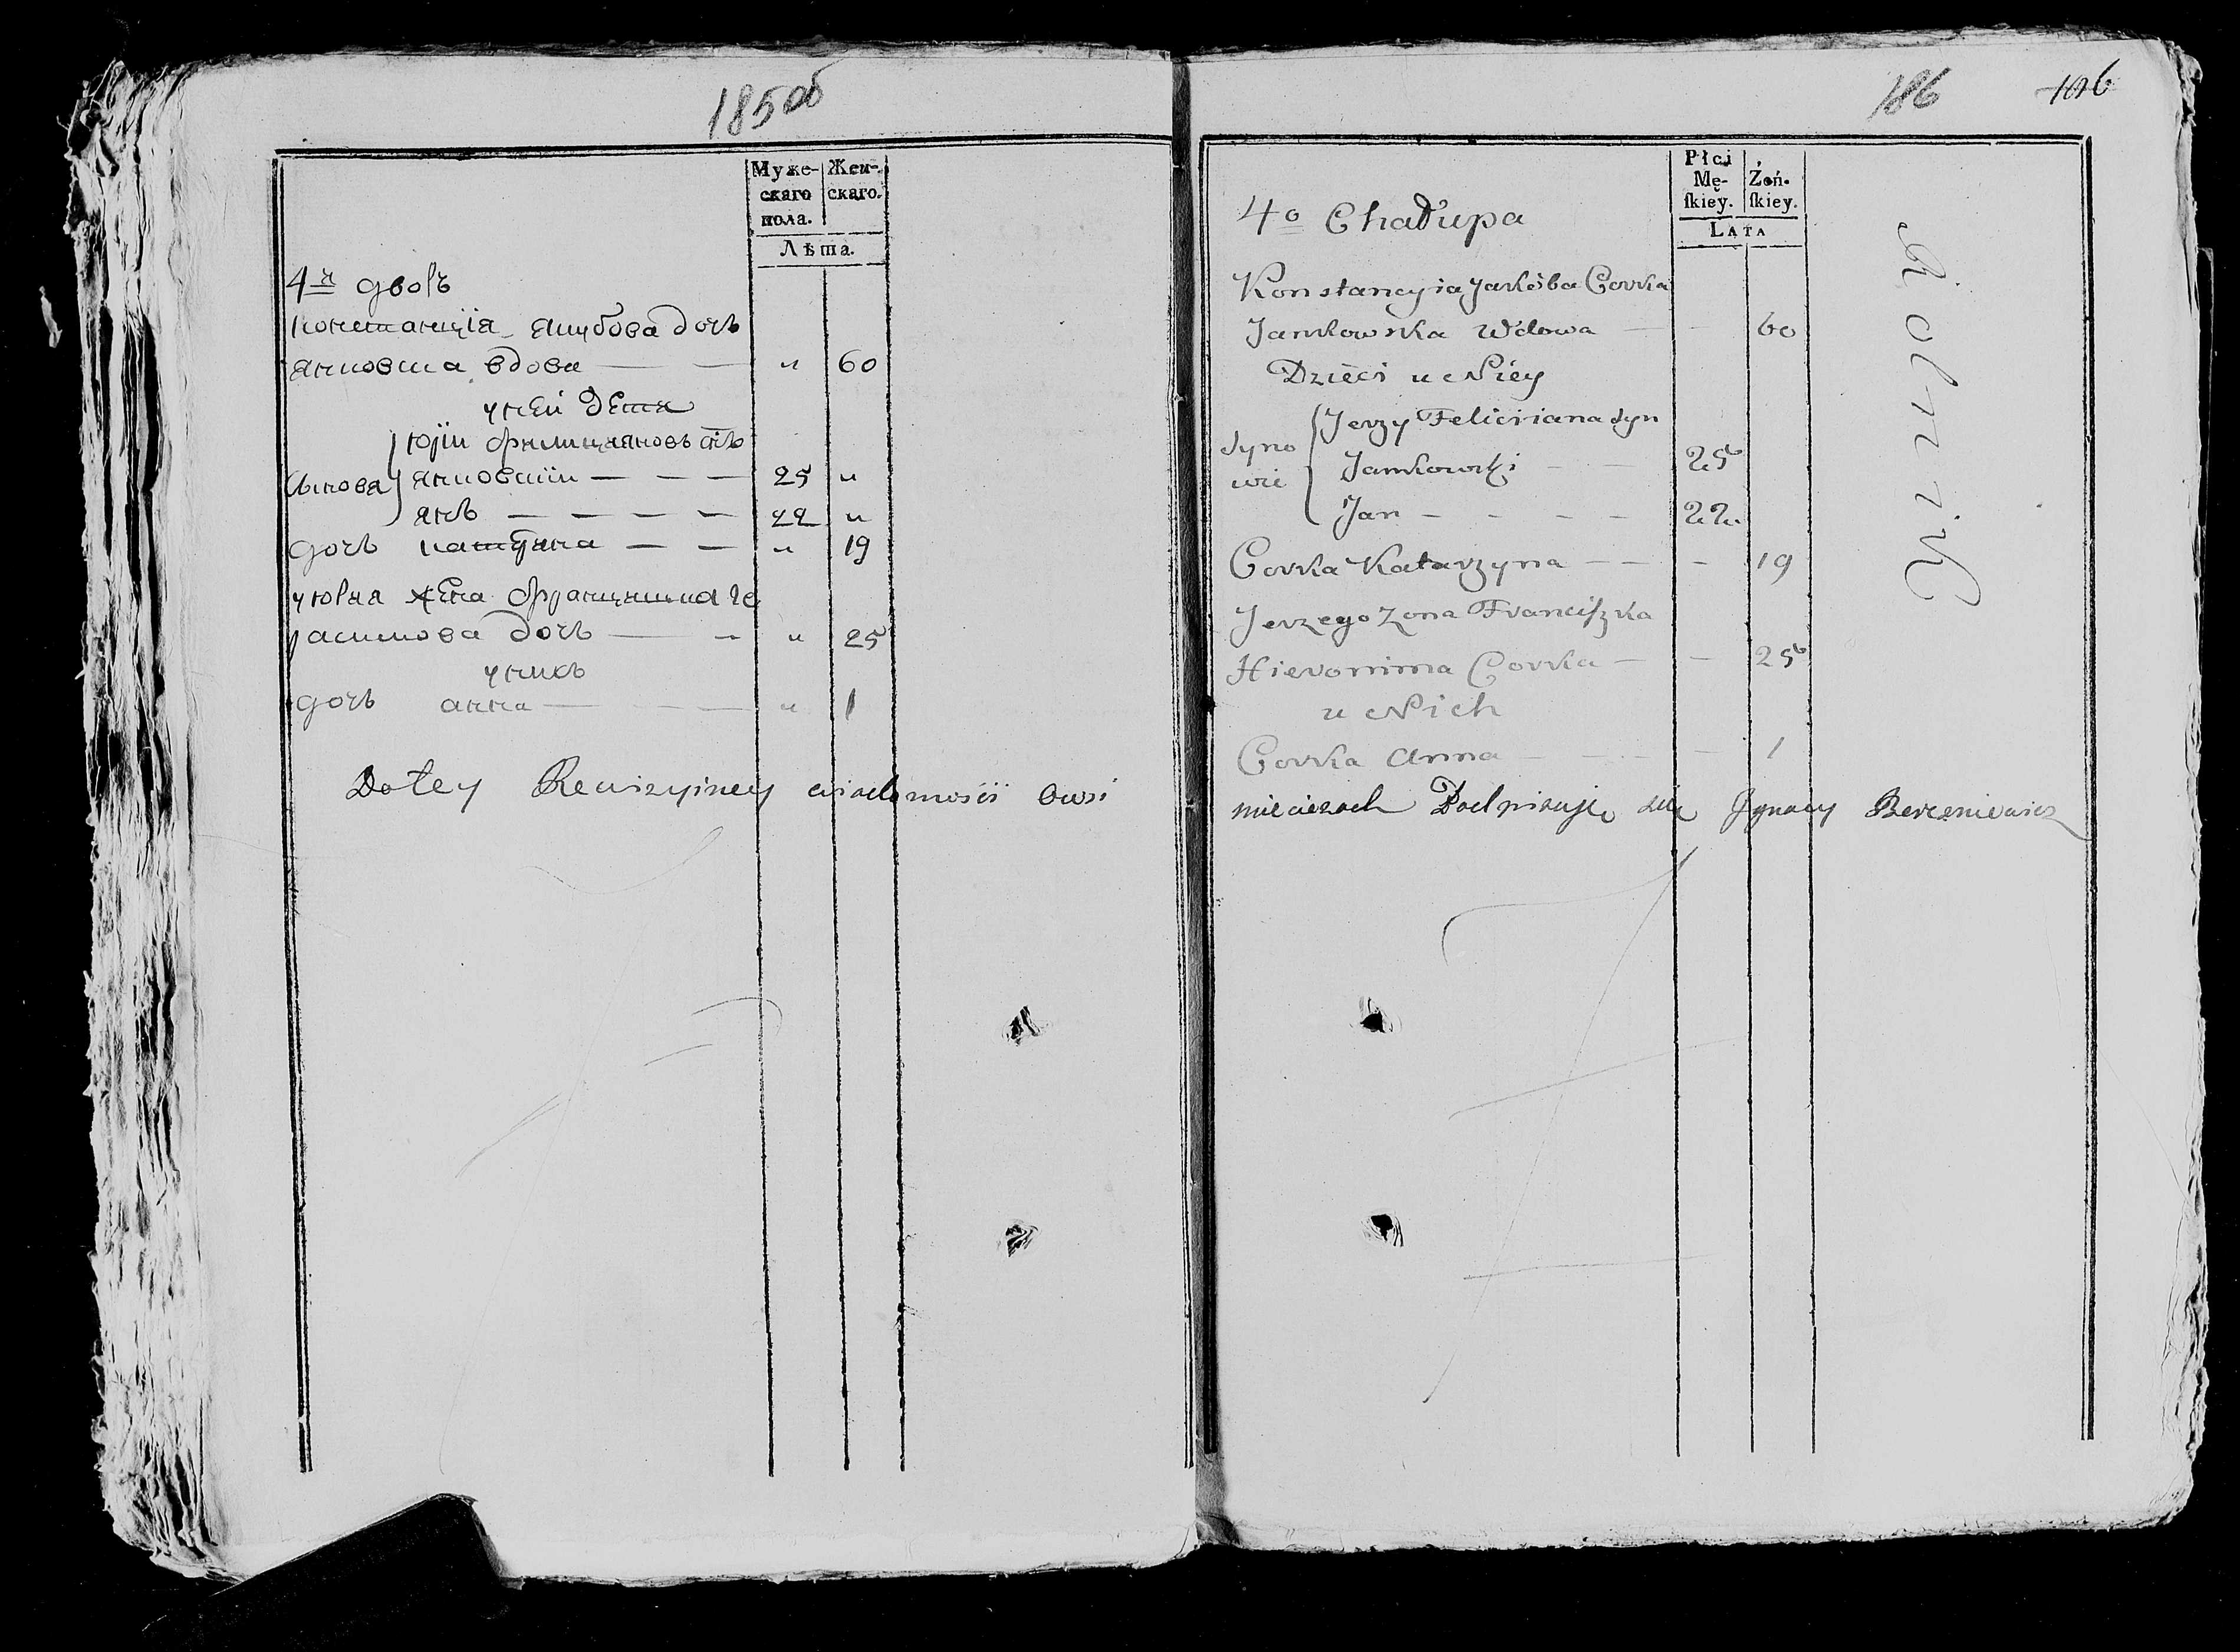 185об
Муже-
скаго
пола.
Жен-
скаго.
Лѣта.
4й дворъ
Констанція Якубова дочь
Янковска вдова — — " 60
у ней дети
Юрiи Фелиціановъ снъ
сынова Янковскiи — — — 25 "
янъ — — — — — 22 "
дочь катерина — — " 19
у юрая жена францишка Ге
расимова дочь — — " 25
у нихъ
дочь анна — — — " 1
Do tey Rewizyiney wiadomosci Owsi
186 106
Płci
Mę-
ſkiey.
Żeń-
ſkiey.
Lata
4o Chałupa
Konstancyia Jakóba Corka
Jankowska Wdowa — — 60
Dzieci u Niey
Jerzy Feliciiana syn
syno
wie
Jankowski — — 25
Jan — — — — 22
Corka Katarzyna — — — 19
Jerzego Zona Franciſzka
Hieronima Corka — — 25
u Nich
Corka Anna — — — 1
Podpisuje się Ignacy
Rolnik